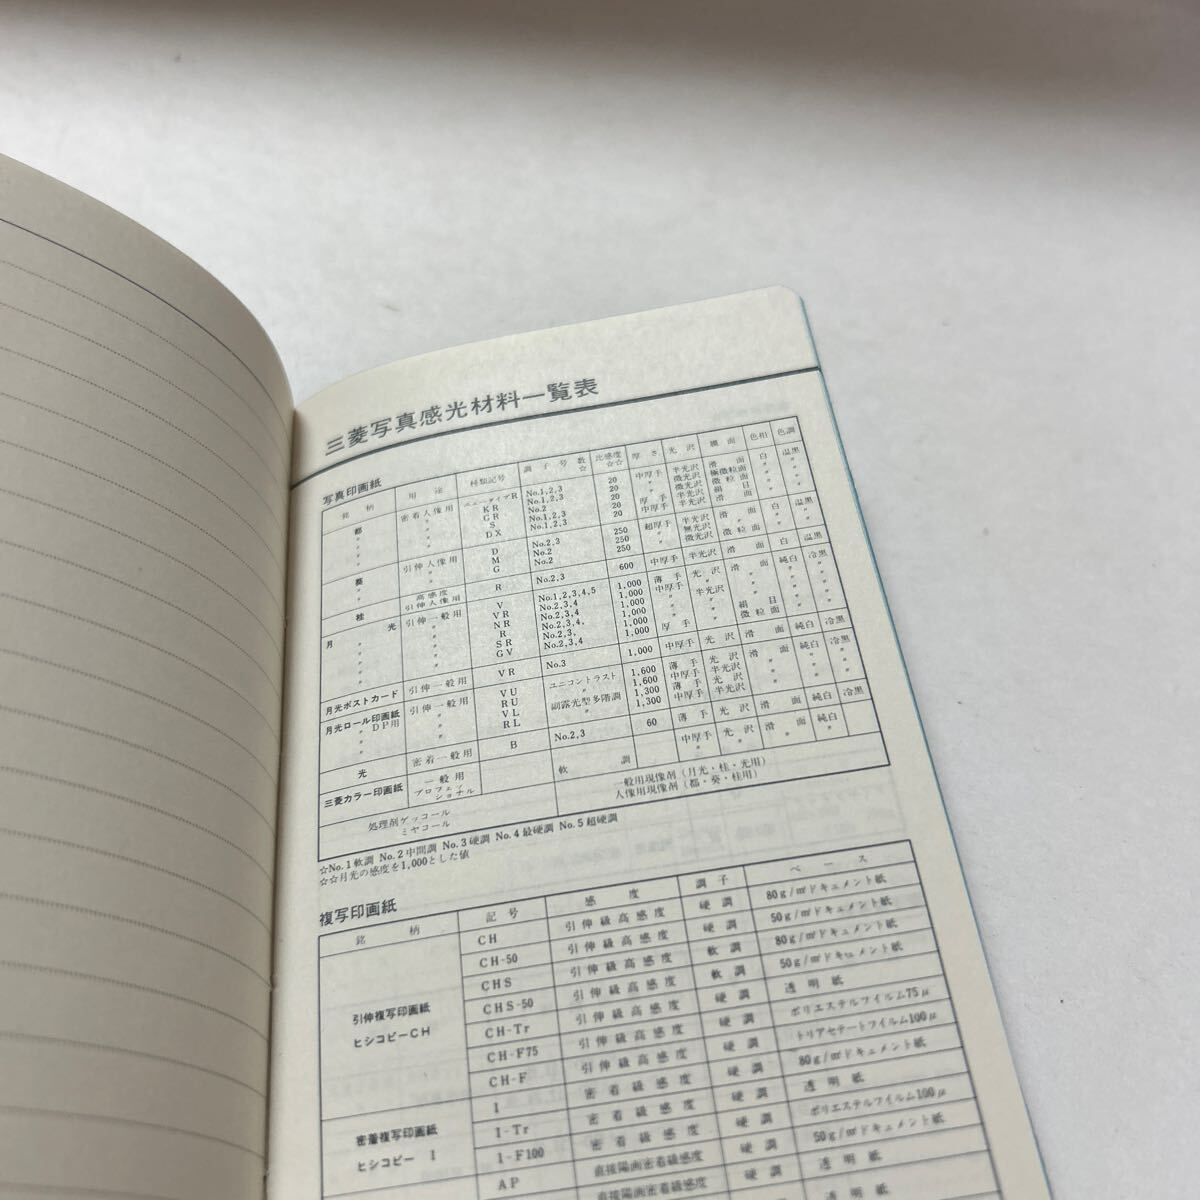 三菱写真感光材料一覧表
写真印画紙
銘柄 用途 種類記号 調子号数☆ 比感度☆☆ 厚さ 光沢 膚面 色相 色調
都 密着人像用 ニュータイプR No.1,2,3 20 中厚手 半光沢 滑面 白 温黒
〃 〃 KR No.1,2,3 20 〃 微光沢 極微粒面 〃 〃
〃 〃 GR No.2 20 〃 微光沢 微粒面 〃 〃
〃 〃 S No.1,2,3 20 厚手 半光沢 絹目 〃 〃
〃 〃 DX No.1,2,3 20 中厚手 半光沢 滑面 白 温黒
葵 引伸人像用 D No.2,3 250 超厚手 半光沢 滑面 白 温黒
〃 〃 M No.2 250 〃 無光沢 〃 〃
〃 〃 G No.2 250 〃 微光沢 微粒面 〃 〃
桂 高感度引伸人像用 R No.2,3 600 中厚手 半光沢 滑面 白 温黒
月光 引伸一般用 V No.1,2,3,4,5 1,000 薄手 光沢 滑面 純白 冷黒
〃 〃 VR No.2,3,4 1,000 中厚手 〃 〃 〃 〃
〃 〃 NR No.2,3,4 1,000 〃 半光沢 〃 〃
〃 〃 R No.2,3,4, 1,000 〃 〃 〃
〃 〃 SR No.2,3, 1,000 〃 絹目 〃 〃
〃 〃 GV No.2,3,4 1,000 厚手 〃 微粒面 〃 〃
月光ポストカード 引伸一般用 VR No.3 1,000 中厚手 光沢 滑面 純白 冷黒
月光ロール印画紙 引伸一般用 VU ユニコントラスト 1,600 薄手 光沢 滑面 純白 冷黒
〃 DP用 〃 RU 〃 1,600 中厚手 半光沢 〃 〃 〃
〃 〃 VL 副露光型多階調 1,300 薄手 光沢 〃 〃 〃
〃 〃 RL 〃 1,300 中厚手 半光沢 〃 〃 〃
光 密着一般用 B No.2,3 60 薄手 光沢 滑面 純白 冷黒
三菱カラー印画紙 一般用 軟調 中厚手 光沢 滑面 純白
プロフェッショナル 〃 〃 〃
処理剤ゲッコール 一般用現像剤（月光・桂・光用）
ミヤコール 人像用現像剤（都・葵・桂用）
☆No.1軟調 No.2中間調 No.3硬調 No.4最硬調 No.5超硬調
☆☆月光の感度を1,000とした値
複写印画紙
銘柄 記号 感度 調子 ベース
引伸複写印画紙
ヒシコピーCH
CH 引伸級高感度 硬調 80g/㎡ドキュメント紙
CH-50 引伸級高感度 硬調 50g/㎡ドキュメント紙
CHS 引伸級高感度 軟調 80g/㎡ドキュメント紙
CHS-50 引伸級高感度 軟調 50g/㎡ドキュメント紙
CH-Tr 引伸級高感度 硬調 透明紙
CH-F75 引伸級高感度 硬調 ポリエステルフイルム75μ
CH-F 引伸級高感度 硬調 トリアセテートフイルム100μ
密着複写印画紙
ヒシコピー I
I 密着級感度 硬調 80g/㎡ドキュメント紙
I-Tr 密着級感度 硬調 透明紙
I-F100 密着級感度 硬調 ポリエステルフイルム100μ
AP 直接陽画密着級感度 硬調 50g/㎡ドキュメント紙
直接陽画密着級感度 硬調 透明紙